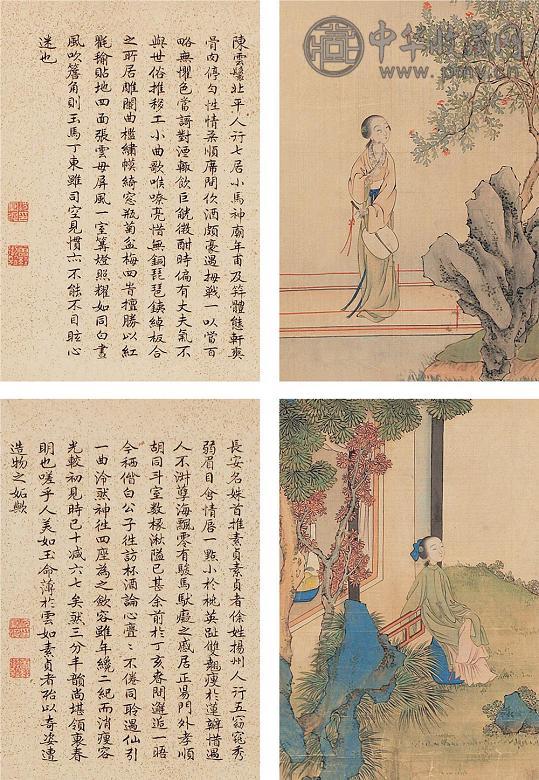 中华收藏网
www.pmv.cn
陳雲鬟北平人行七居小馬神廟年甫及笄體態軒爽
骨肉停勻性情柔順席間侑酒頗豪遇拇戰一以當百
略無懼色當謌對酒輒飲巨觥微酣時偏有丈夫氣不
與世俗推移工小曲歌喉嘹亮惜無銅琵琶鐵綽板合
之所居雕闌曲檻繡幙綺窓瓶菊盆梅四旹擅勝以紅
氍毹貼地四面張雲母屏風一室篝燈照耀如同白晝
風吹簷角則玉馬丁東雖司空見慣亦不能不目眩心
迷也
長安名姝首推素貞素貞者徐姓揚州人行五窈窕秀
弱眉目含情唇一點小於桃英趾雙翹瘦於蓮瓣惜遇
人不淑孽海飄零有駿馬馱癡之感居正易門外孝順
胡同斗室數椽湫隘已甚余前於丁亥春間邂逅一晤
今秋偕白公子往訪杯酒論心亹亹不倦同聆過仙引
一曲泠然神往四座為之斂容雖年纔二紀而消瘦容
光較初見時已十減六七矣然三分丰韻尚堪領袠春
明也嗟乎人美如玉命薄於雲如素貞者殆以奇姿遭
造物之妬歟